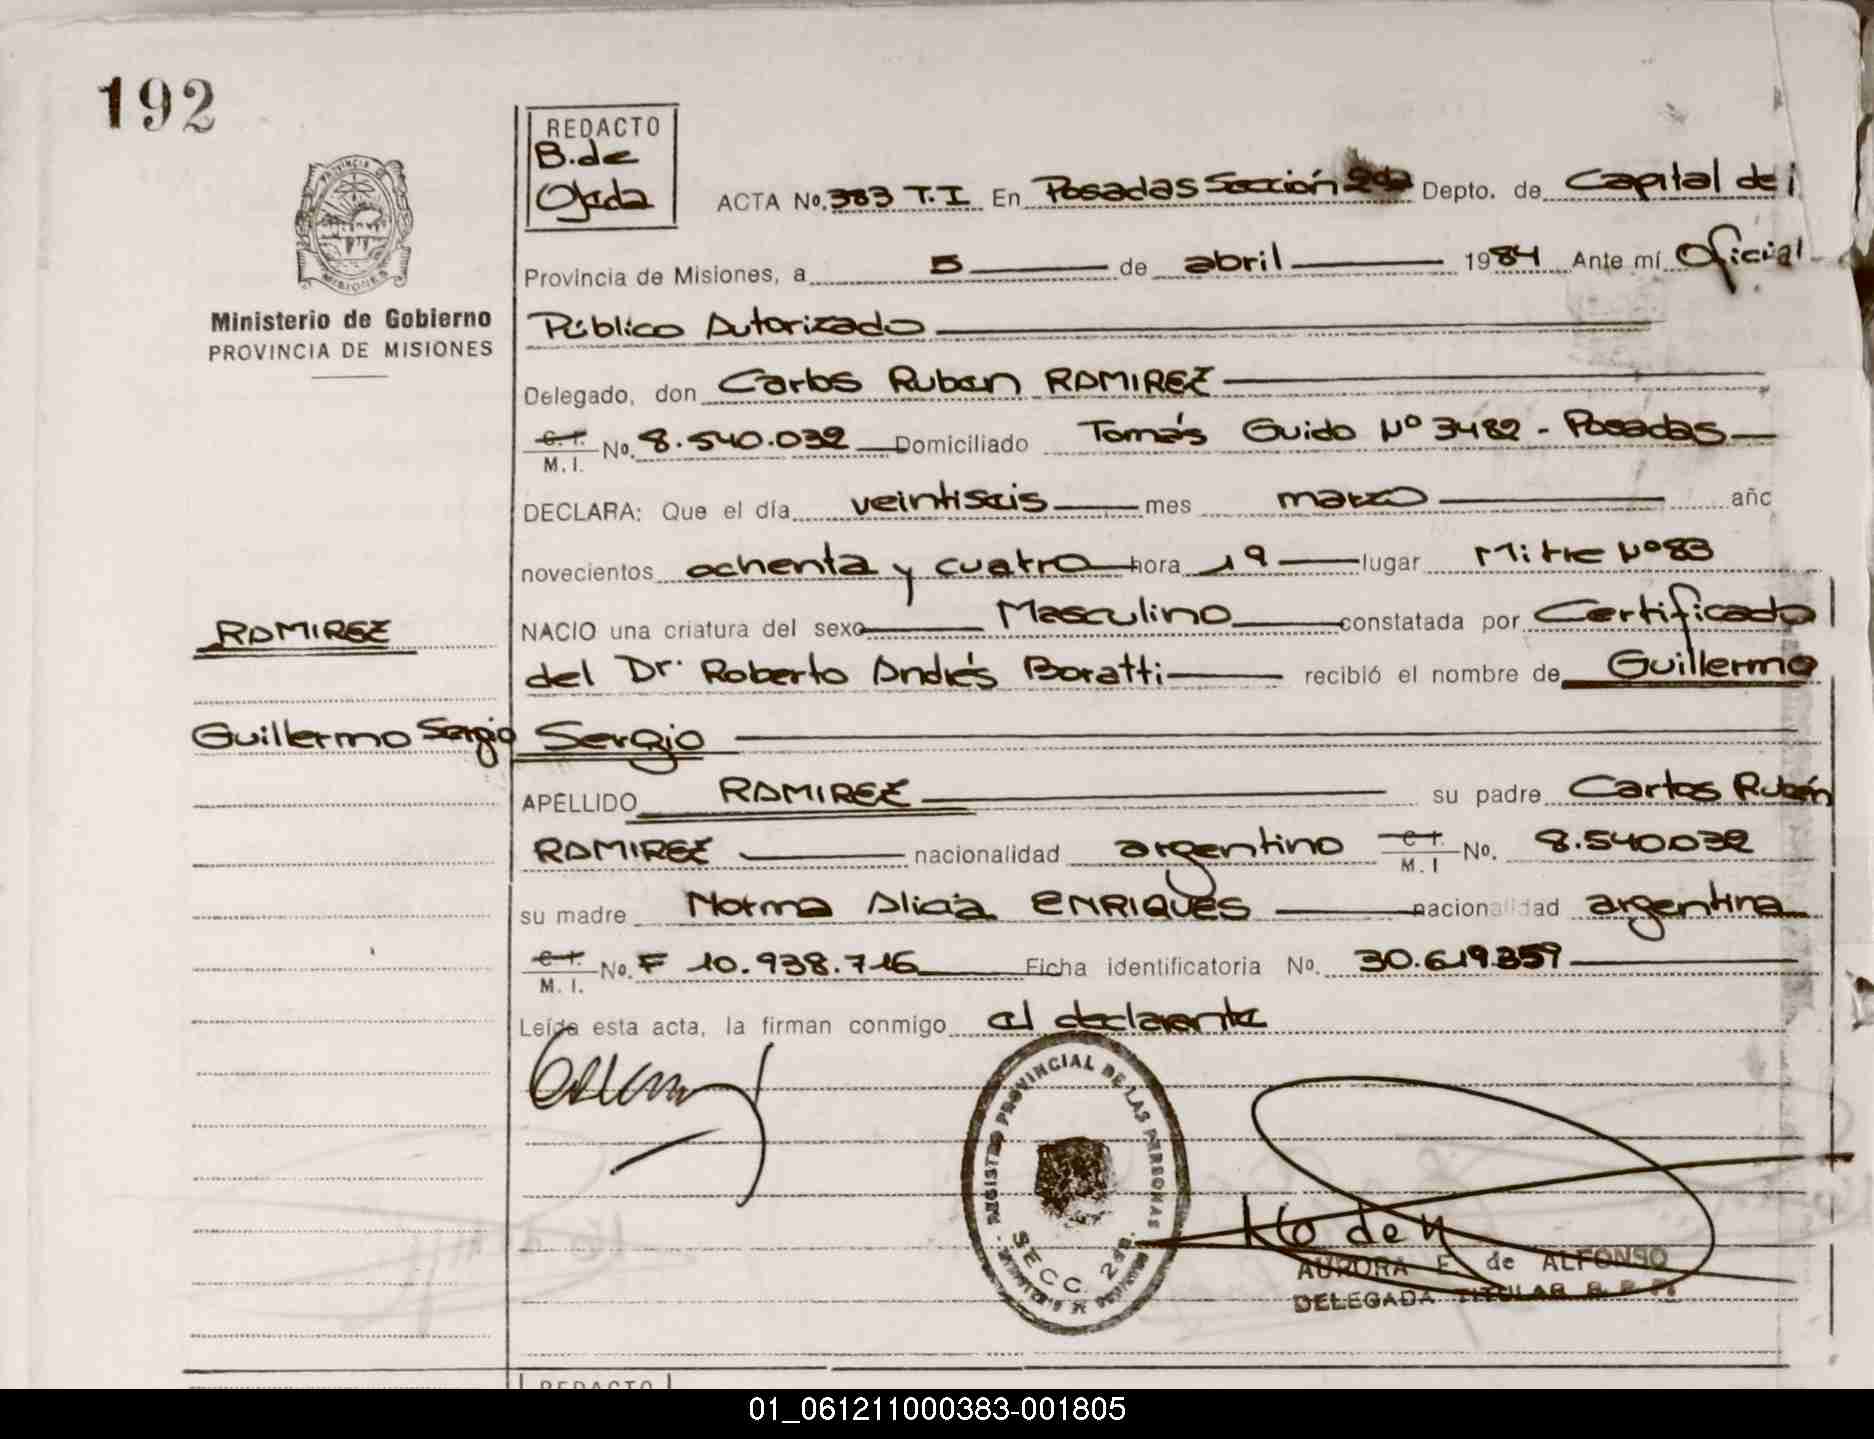 192
REDACTO
B. de
Ojeda
PROVINCIA DE
MISIONES
Ministerio de Gobierno
PROVINCIA DE MISIONES
ACTA No. 383 T.I En Posadas Sección 2da Depto. de Capital de
Provincia de Misiones, a 5 de abril 1984 Ante mí Oficial
Público Autorizado
Delegado, don Carlos Ruben RAMIREZ
C. I. / M. I. No. 8.540.032 Domiciliado Tomás Guido Nº 3482 - Posadas
DECLARA: Que el día veintiseis mes marzo año
novecientos ochenta y cuatro hora 19 lugar Mitre Nº 83
NACIO una criatura del sexo Masculino constatada por Certificado
del Dr. Roberto Andrés Boratti recibió el nombre de Guillermo
Sergio
RAMIREZ
Guillermo Sergio
APELLIDO RAMIREZ su padre Carlos Rubén
RAMIREZ nacionalidad argentino C. I. / M. I No. 8.540.032
su madre Norma Alicia ENRIQUES nacionalidad argentina
C. I. / M. I. No. F 10.938.716 Ficha identificatoria No. 30.619.359
Leída esta acta, la firman conmigo el declarante
REGISTRO PROVINCIAL DE LAS PERSONAS
SECC. 2da.
AURORA E. de ALFONSO
DELEGADA TITULAR R. P. P.
REDACTO
01_061211000383-001805